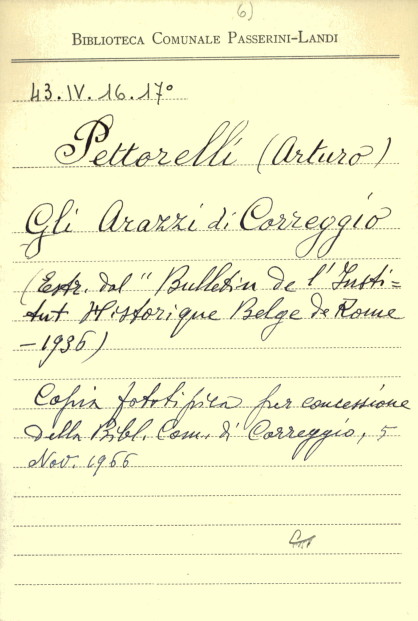 6)
BIBLIOTECA COMUNALE PASSERINI-LANDI
43.IV.16.17°
Pettorelli (Arturo)
Gli Arazzi di Correggio
(Estr. dal "Bulletin de l'Insti=
tut Historique Belge de Rome
- 1936)
Copia fototipica per concessione
della Bibl. Com. di Correggio, 5
Nov. 1966